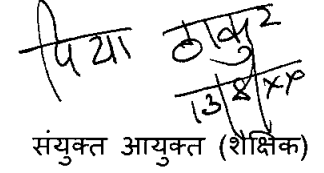 पिया ठाकुर
13/8/xx
संयुक्त आयुक्त (शैक्षिक)